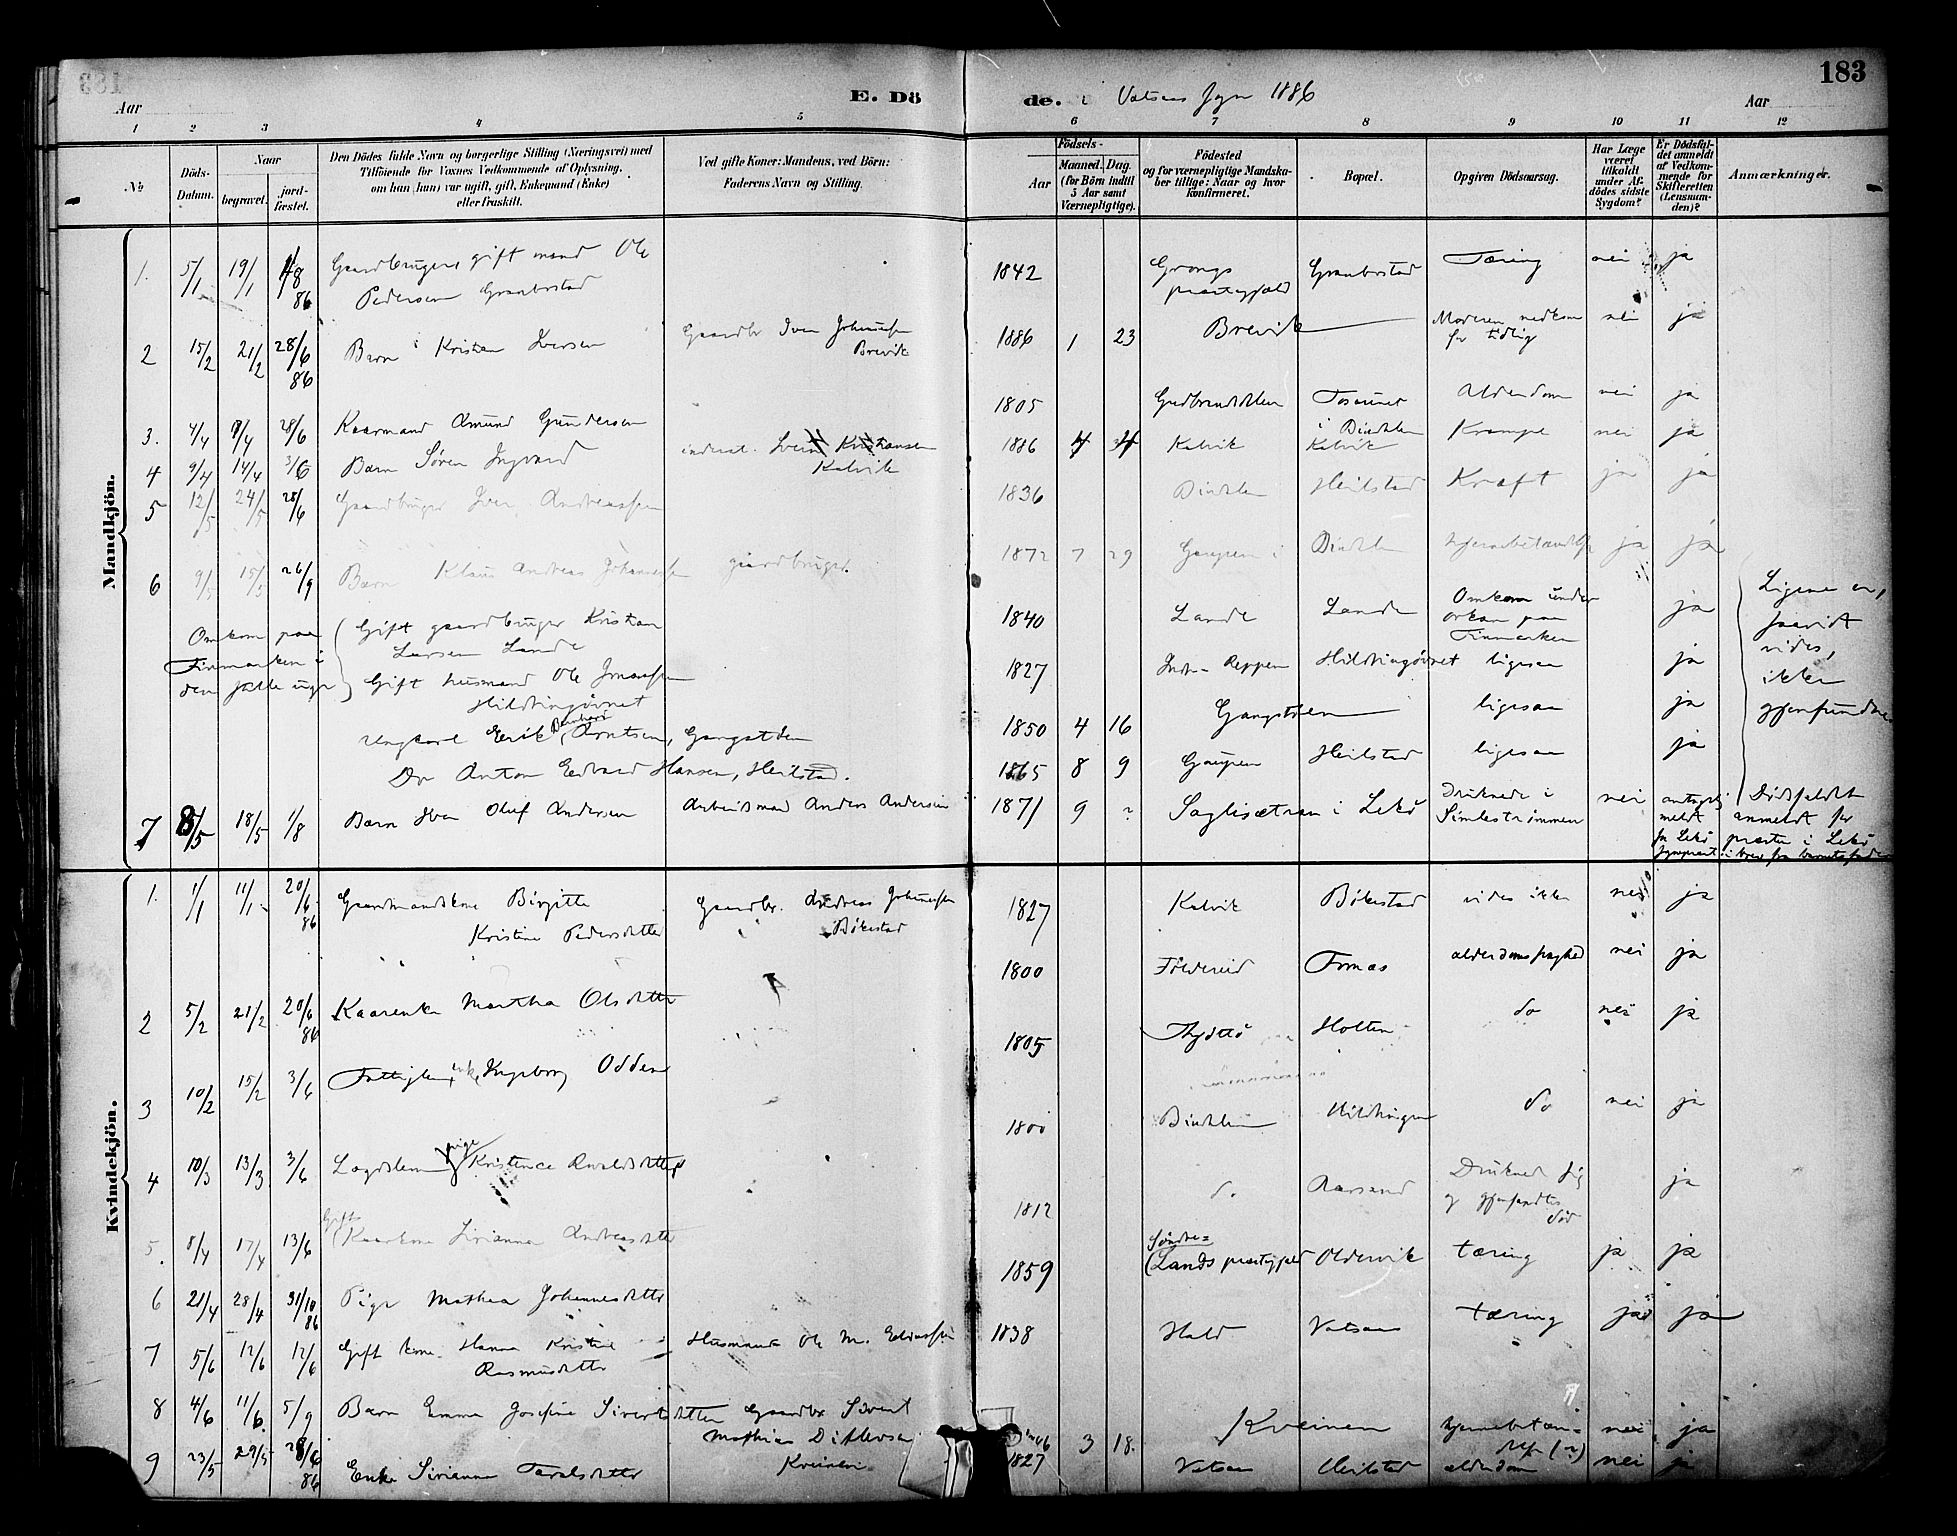 183
Aar
E. Dö
de. i Vatsaas Sogn 1886
Aar
1 2 3 4 5 6 7 8 9 10 11 12
№
Döds-Datum.
Naar
begravet.
jord-fæstet.
Den Dödes fulde Navn og borgerlige Stilling (Næringsvei) med
Tilföiende for Voxnes Vedkommende af Oplysning,
om han (hun) var ugift, gift, Enkemand (Enke)
eller fraskilt.
Ved gifte Koner: Mandens, ved Börn:
Faderens Navn og Stilling.
Födsels-
Aar
Maaned. Dag.
(for Börn indtil
5 Aar samt
Værnepligtige).
Födested
og for værnepligtige Mandska-
ber tillige: Naar og hvor
konfirmeret.
Bopæl.
Opgiven Dödsaarsag.
Har Læge
været
tilkaldt
under Af-
dödes sidste
Sygdom?
Er Dödsfal-
det anmeldt
af Vedkom-
mende for
Skifteretten
(Lensman-
den)?
Anmærkninger.
Mandkjön.
1. 5/1 19/1 1/8 86 Gaardbruger, gift mand Ole
Pedersen Granbostad
1842 Grongs
præstegjæld Granbostad Tæring nei ja
2 15/2 21/2 28/6 86 Barn Kristian Iversen Gaardbr Iver Johannessen
Brevik
1886 1 23 Brevik Moderen nedkom
for tidlig nei ja
3. 4/4 9/4 28/6 Kaarmand Amund Gundersen
1805 Gudbrandsdalen Tosaunet
i Bindalen Alderdom nei ja
4 9/4 14/4 3/6 Barn Søren Ingvard inderst. Kristiansen
Kalvik
1886 4 Kalvik Kalvik Krampe nei ja
5 12/5 24/5 28/6 Gaardbruger Iver Andreassen
1836 Bindalen Heilstad Kræft ja ja
6 9/5 15/5 26/9 Barn Klaus Andreas Johannessen gaardbruger.
1872 7 29 Gaupen i Bindalen hjernebetændelse ja ja
Omkom paa
Finmarken i
den
Gift gaardbruger Kristian
Larsen Lande
1840 Lande Lande Omkom under
orkan paa
Finmarken ja
Gift husmand Ole Jonassen
Hildtingøvret
1827 Indre Reppen Hildtingøvret ligesaa ja
Ungkarl Erik Bernhard Arntsen, Gangstøen
1850 4 16 Gangstøen ligesaa ja
Do Anton Edvard Hansen, Heilstad.
1865 8 9 Gaupen Heilstad ligesaa ja
Ligene er,
saavidt
vides,
ikke
gjenfundne
7 8/5 18/5 1/8 Barn Iver Oluf Andersen Arbeidsmand Anders Andersen
1871 9 ? Saglisætran i Lekø Druknede i
Simlestrømmen nei
Dødsfaldet
anmeldt for
præsten i Lekø
i brev fra barnets fader
Kvindekjön.
1. 1/1 11/1 20/6 86 Gaardmandskone Birgitte
Kristine Pedersdatter Gaardbr. Andreas Johannessen
Bøkestad
1827 Kalvik Bøkestad vides ikke nei ja
2 5/2 21/2 20/6 86 Kaarenke Martha Olsdatter
1800 Foldereid Tomas alderdomssvaghed nei ja
3 10/2 15/2 3/6 Fattiglem, enke Ingeborg Odden
1805 Holten do nei ja
4 10/3 13/3 3/6 Lægdslem pige Kristence Arnoldsdatter
1800 Bindalen Hildtingen do nei ja
5. 8/4 17/4 13/6 Gift
Kaarkone Sirianna Andreasdatter
1812 do Aarsand Druknede sig
og gjenfandtes
død ja
6 21/4 28/4 31/10 86 Pige Mathea Johannesdatter
1859 Søndre-
Lands præstegjæld Oldervik tæring ja ja
7 5/6 12/6 12/6 Gift kone Hanna Kristine
Rasmusdatter Husmand Ole M.
1838 Hald Vatsaas tæring ja ja
8 4/6 11/6 5/9 Barn Emma Josefine Sivertsdatter Gaardbr Sivert
Mathias Ditlevsen
Kveinen
3 18 Kveinen hjernebetæn-
delse (?) nei ja
9 23/5 29/5 28/6 86 Enke Sirianna Taralsdatter
1827 Vatsaas Heilstad alderdom nei ja